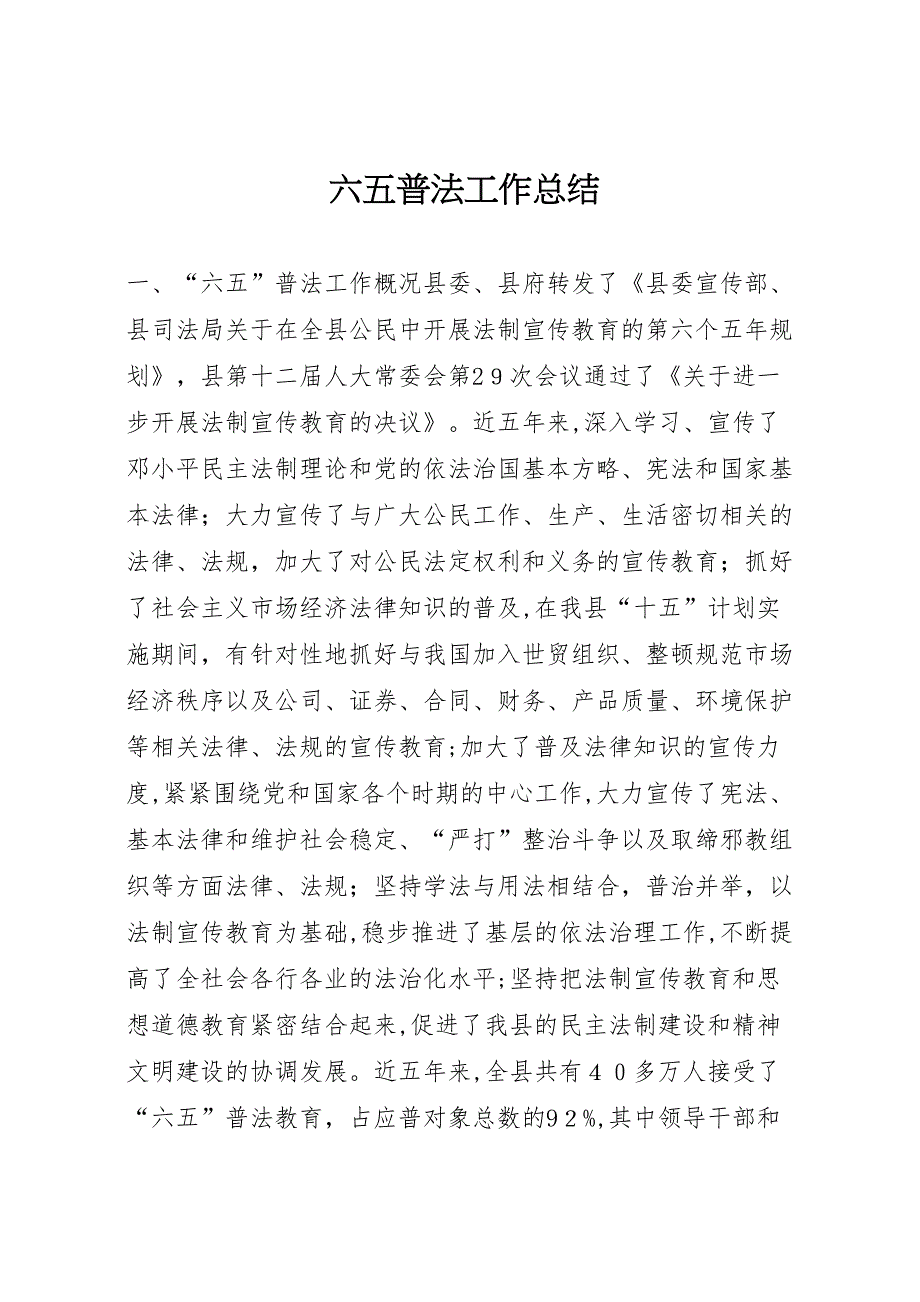 六五普法工作总结
一、“六五”普法工作概况县委、县府转发了《县委宣传部、
县司法局关于在全县公民中开展法制宣传教育的第六个五年规
划》，县第十二届人大常委会第29次会议通过了《关于进一
步开展法制宣传教育的决议》。近五年来,深入学习、宣传了
邓小平民主法制理论和党的依法治国基本方略、宪法和国家基
本法律；大力宣传了与广大公民工作、生产、生活密切相关的
法律、法规，加大了对公民法定权利和义务的宣传教育；抓好
了社会主义市场经济法律知识的普及,在我县“十五”计划实
施期间，有针对性地抓好与我国加入世贸组织、整顿规范市场
经济秩序以及公司、证券、合同、财务、产品质量、环境保护
等相关法律、法规的宣传教育;加大了普及法律知识的宣传力
度,紧紧围绕党和国家各个时期的中心工作,大力宣传了宪法、
基本法律和维护社会稳定、“严打”整治斗争以及取缔邪教组
织等方面法律、法规；坚持学法与用法相结合，普治并举，以
法制宣传教育为基础,稳步推进了基层的依法治理工作,不断提
高了全社会各行各业的法治化水平;坚持把法制宣传教育和思
想道德教育紧密结合起来,促进了我县的民主法制建设和精神
文明建设的协调发展。近五年来,全县共有４０多万人接受了
“六五”普法教育，占应普对象总数的92%,其中领导干部和